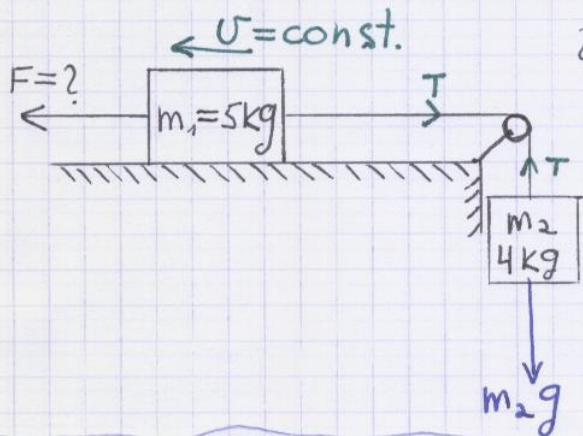 υ=const.
F=?
m₁=5kg
T
T
m₂
4kg
m₂g